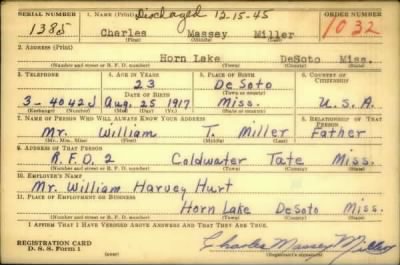 SERIAL NUMBER 1. NAME (Print) Discharged 12-15-45 ORDER NUMBER
1385 Charles Massey Miller 1032
(First) (Middle) (Last)
2. ADDRESS (Print)
Horn Lake DeSoto Miss.
(Number and street or R. F. D. number) (Town) (County) (State)
3. TELEPHONE 4. AGE IN YEARS 5. PLACE OF BIRTH 6. COUNTRY OF CITIZENSHIP
23 DeSoto
DATE OF BIRTH (Town or county)
3-4042J Aug. 25 1917 Miss. U.S.A.
(Exchange) (Number) (Mo.) (Day) (Yr.) (State or country)
7. NAME OF PERSON WHO WILL ALWAYS KNOW YOUR ADDRESS 8. RELATIONSHIP OF THAT PERSON
Mr. William T. Miller Father
(Mr., Mrs., Miss) (First) (Middle) (Last)
9. ADDRESS OF THAT PERSON
R.F.D. 2 Coldwater Tate Miss.
(Number and street or R. F. D. number) (Town) (County) (State)
10. EMPLOYER'S NAME
Mr. William Harvey Hurt
11. PLACE OF EMPLOYMENT OR BUSINESS
Horn Lake DeSoto Miss.
(Number and street or R. F. D. number) (Town) (County) (State)
I AFFIRM THAT I HAVE VERIFIED ABOVE ANSWERS AND THAT THEY ARE TRUE.
REGISTRATION CARD
D. S. S. Form 1 Charles Massey Miller
(Registrant's signature)